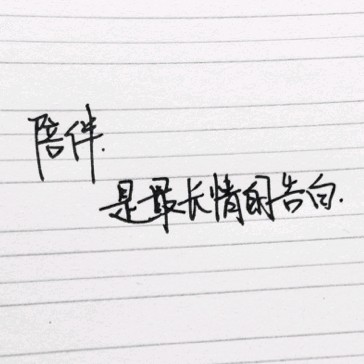 陪伴.
是最长情的告白.